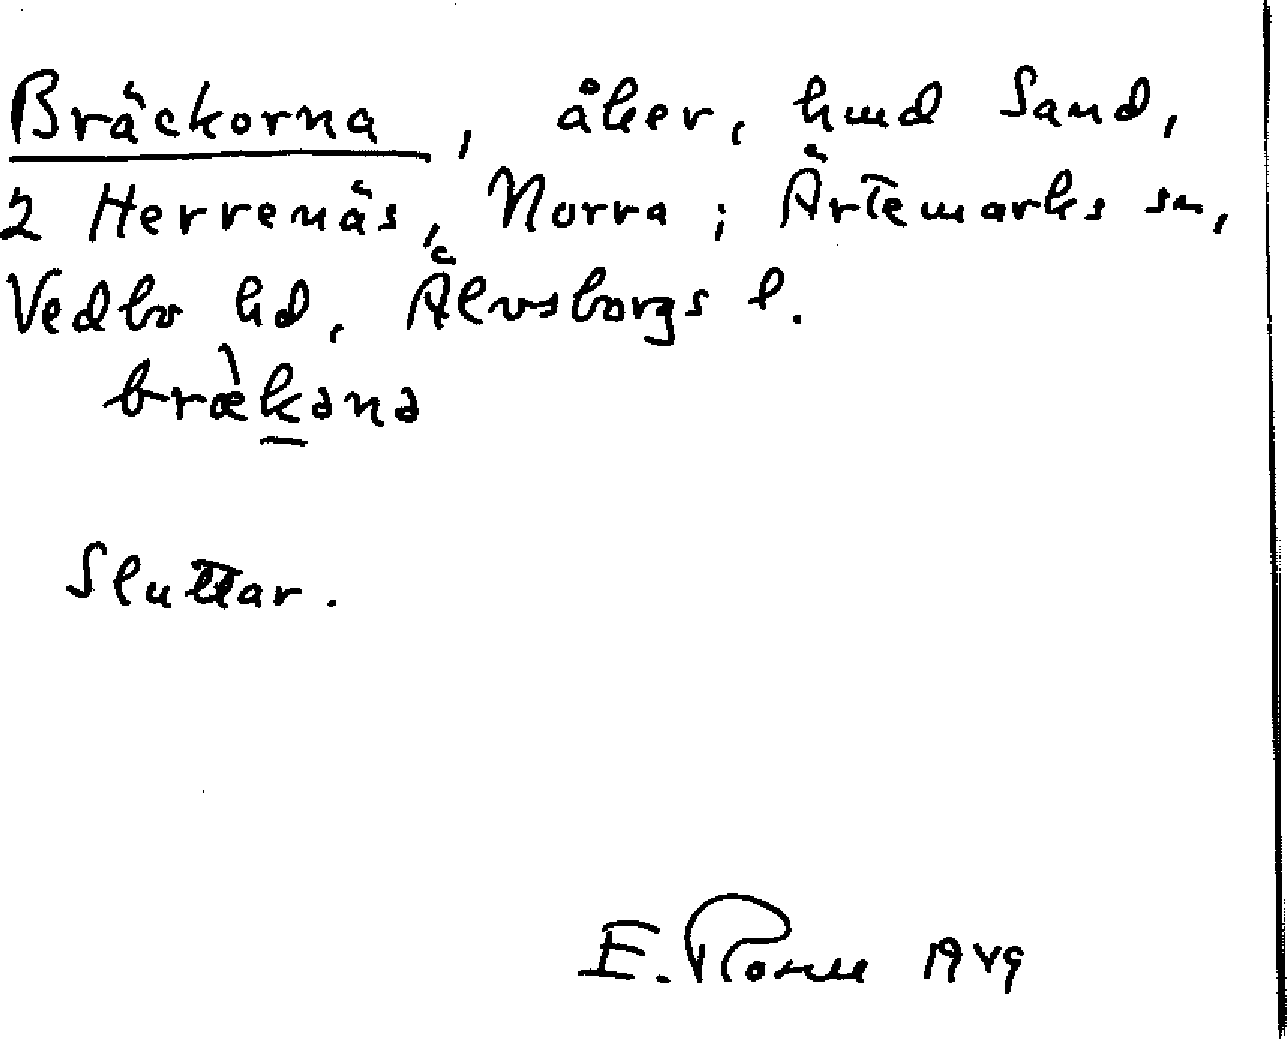 Bräckorna, åker, hmd Sand,
2 Herrenäs, Norra; Ärtemarks sn,
Vedbo hd, Älvsborgs l.
bræ̀kənə
Sluttar.
E. 1949